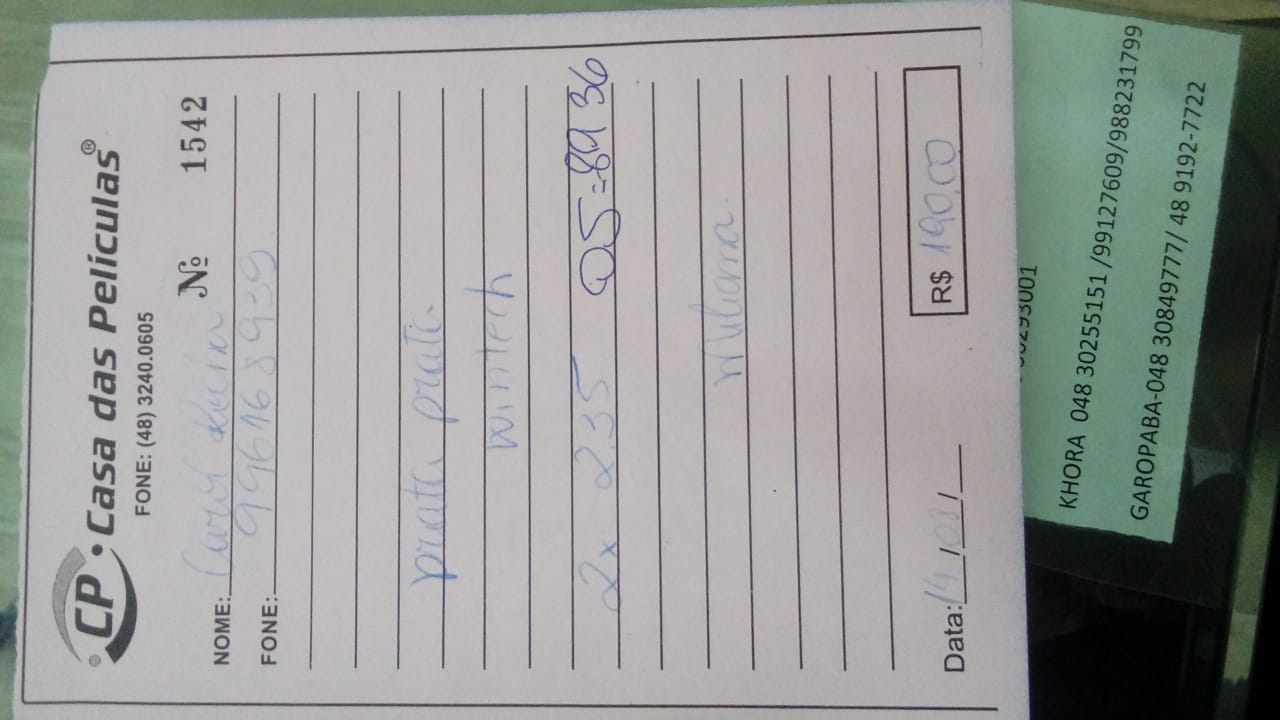 CP ® Casa das Películas®
FONE: (48) 3240.0605
Nº 1542
NOME:
FONE: 996168939
prata prata.
wintech
2x 2.35 05=8936
R$ 190,00
Data: 14/08/
KHORA 048 30255151 /99127609/988231799
GAROPABA-048 30849777/ 48 9192-7722